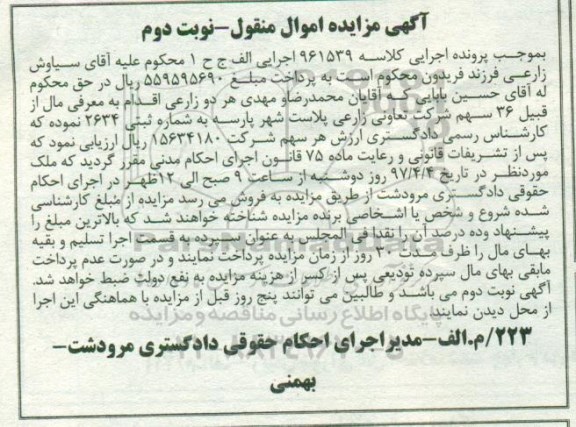 آگهی مزایده اموال منقول-نوبت دوم
بموجب پرونده اجرایی کلاسه ۹۶۱۵۳۹ اجرایی الف ج ح ۱ محکوم علیه آقای سیاوش
زارعی فرزند فریدون محکوم است به پرداخت مبلغ ۵۵۹۵۹۵۶۹۰ ریال در حق محکوم
له آقای حسین بابایی که آقایان محمدرضاو مهدی هر دو زارعی اقدام به معرفی مال از
قبیل ۳۶ سهم شرکت تعاونی زارعی پلاست شهر پارسه به شماره ثبتی ۲۶۳۴ نموده که
کارشناس رسمی دادگستری ارزش هر سهم شرکت ۱۵۶۳۴۱۸۰ ریال ارزیابی نمود که
پس از تشریفات قانونی و رعایت ماده ۷۵ قانون اجرای احکام مدنی مقرر گردید که ملک
موردنظر در تاریخ ۹۷/۴/۴ روز دوشنبه از ساعت ۹ صبح الی ۱۲ظهر در اجرای احکام
حقوقی دادگستری مرودشت از طریق مزایده به فروش می رسد مزایده از مبلغ کارشناسی
شده شروع و شخص یا اشخاصی برنده مزایده شناخته خواهند شد که بالاترین مبلغ را
پیشنهاد وده درصد آن را نقدا فی المجلس به عنوان سپرده به قسمت اجرا تسلیم و بقیه
بهای مال را ظرف مدت ۳۰ روز از زمان مزایده پرداخت نمایند و در صورت عدم پرداخت
مابقی بهای مال سپرده تودیعی پس از کسر از هزینه مزایده به نفع دولت ضبط خواهد شد.
آگهی نوبت دوم می باشد و طالبین می توانند پنج روز قبل از مزایده با هماهنگی این اجرا
از محل دیدن نمایند.
پایگاه اطلاع رسانی مناقصه و مزایده
۲۲۳/م.الف-مدیراجرای احکام حقوقی دادگستری مرودشت-
بهمنی